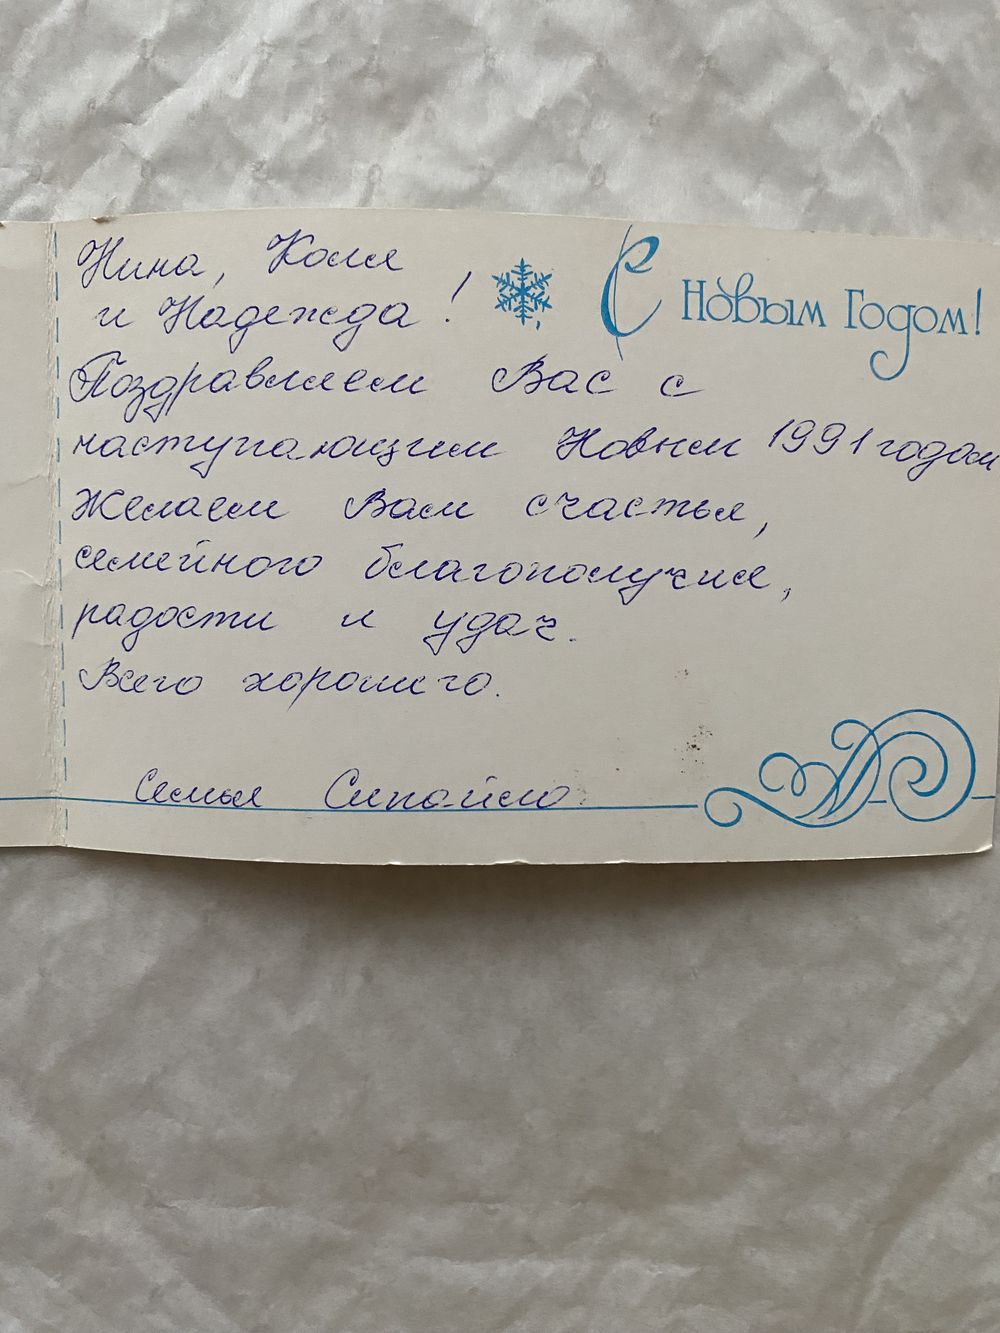 Нина, Коля
и Надежда!
С Новым Годом!
Поздравляем Вас с
наступающим Новым 1991 годом
Желаем Вам счастья,
семейного благополучия,
радости и удач.
Всего хорошего.
Семья Сипайло